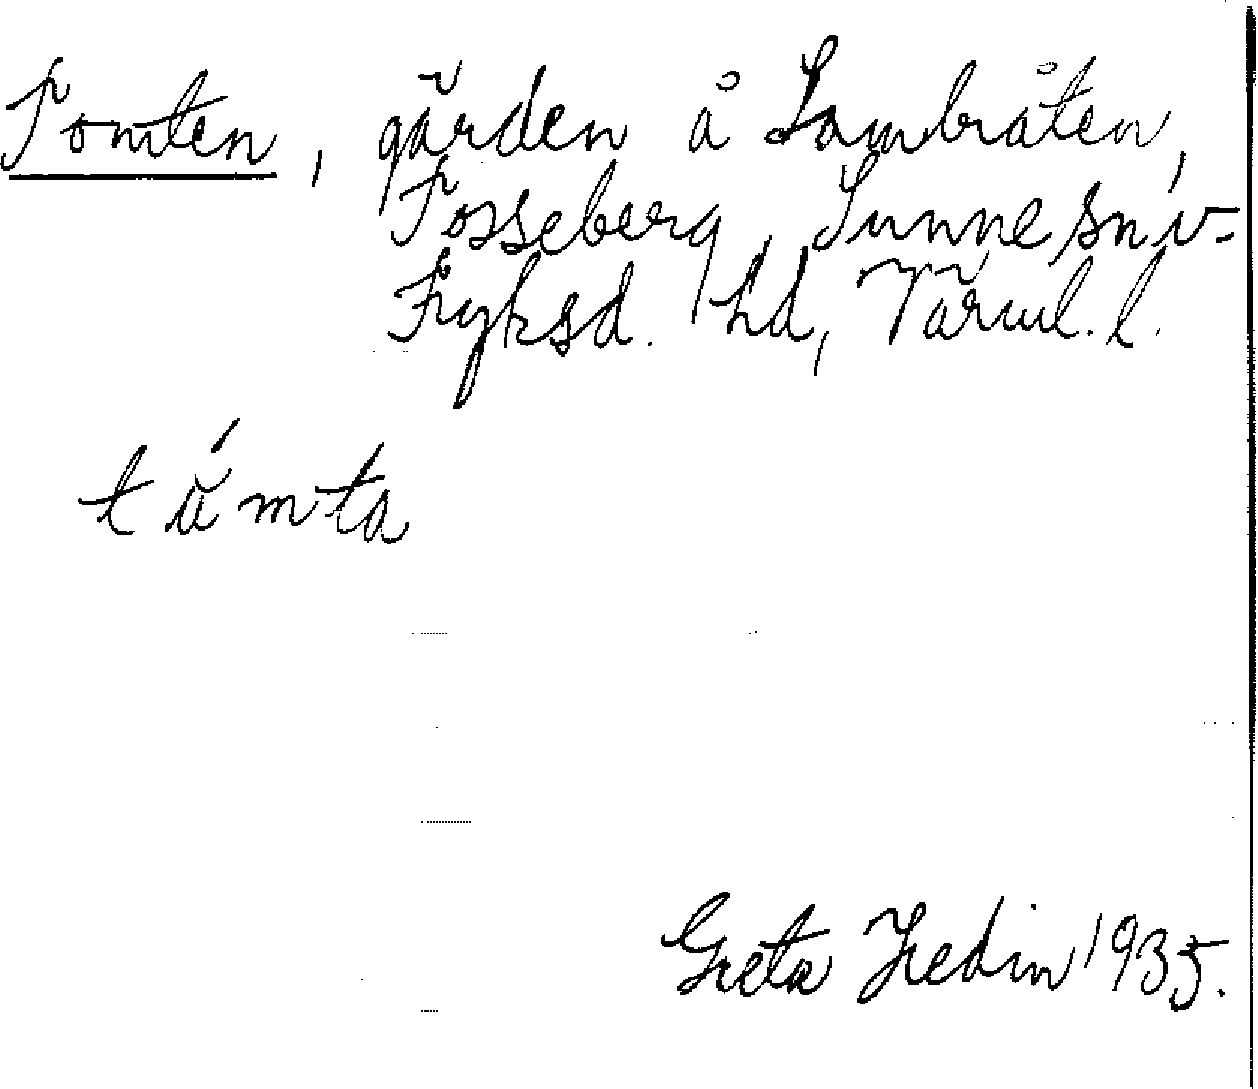 Tomten, gården å Lambråten,
Fosseberg, Sunne sn, v-
Fryksd. hd, Värml. l.
tǻmta
Greta Hedin 1935.